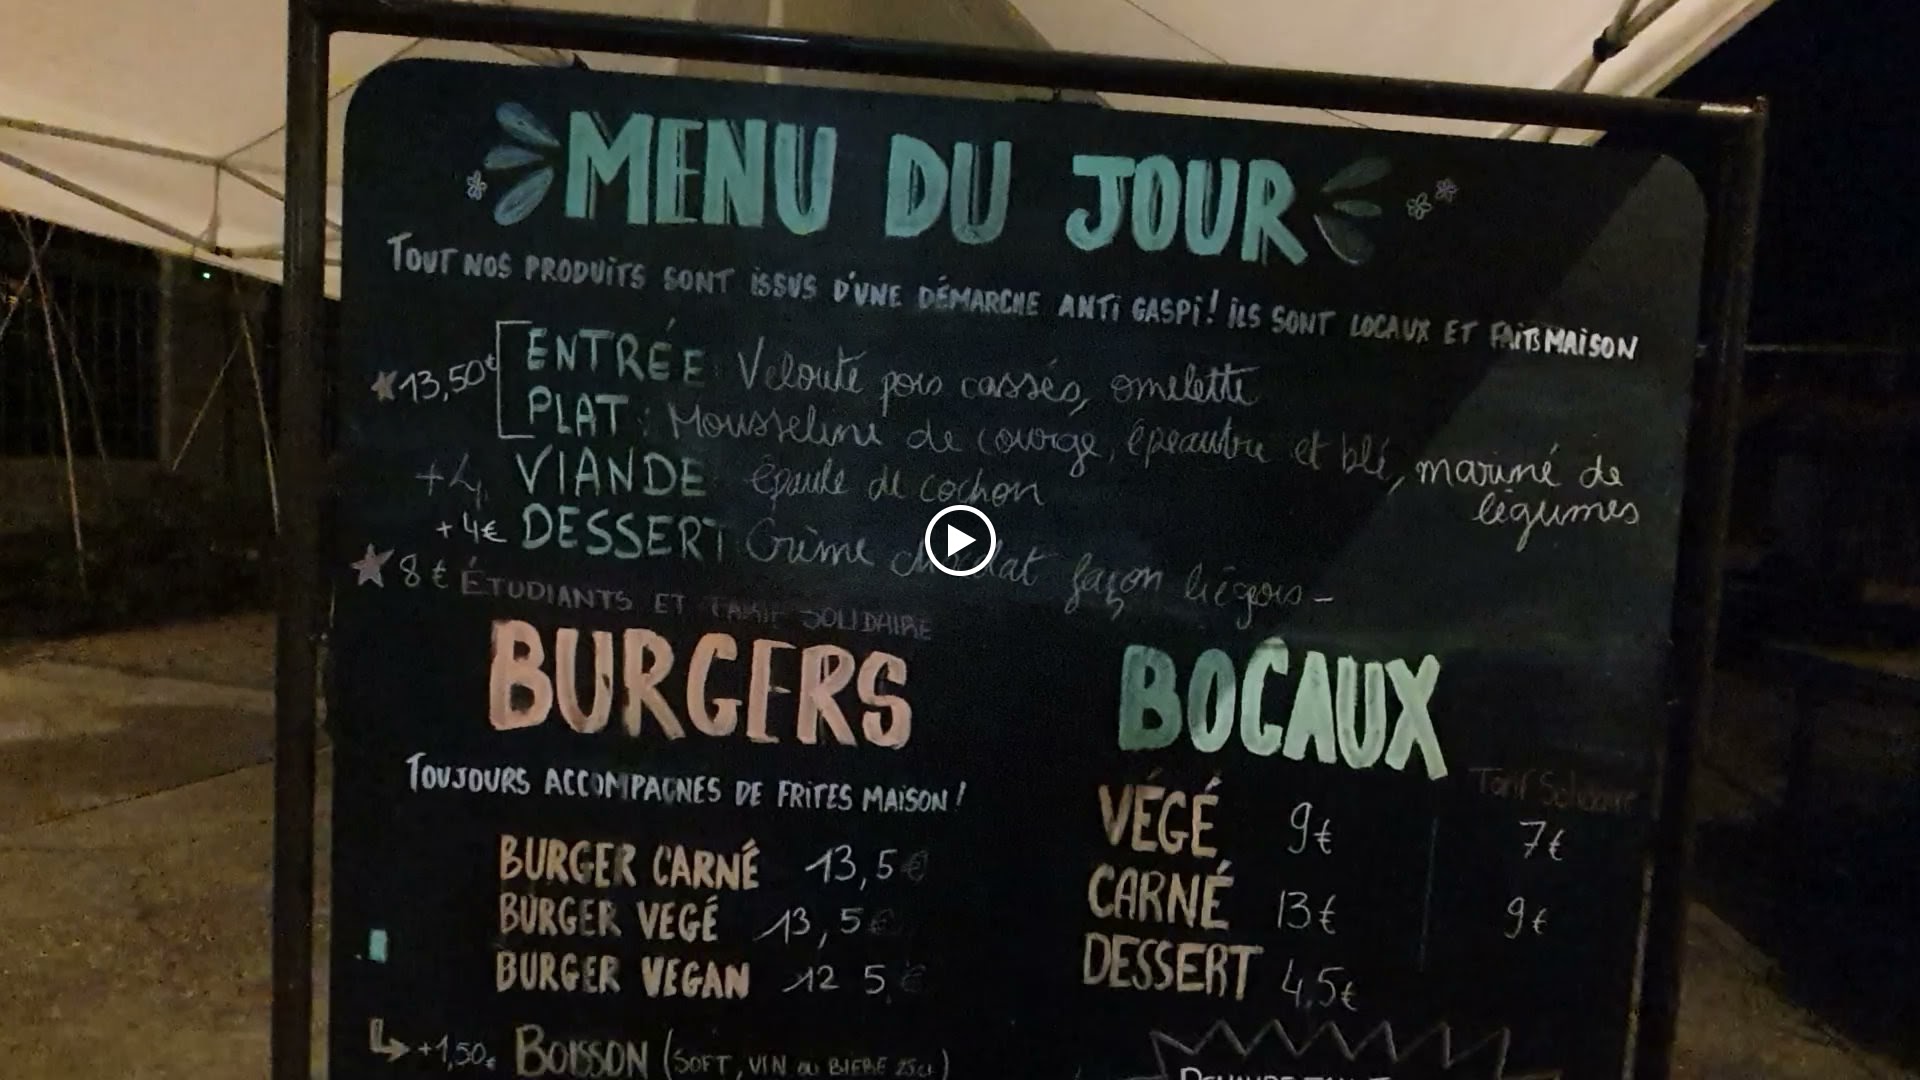 MENU DU JOUR
TOUT NOS PRODUITS SONT ISSUS D'UNE DÉMARCHE ANTI GASPI! ILS SONT LOCAUX ET FAITS MAISON
13,50€ ENTRÉE: Velouté pois cassés, omelette
PLAT: Mousseline de courge, épeautre et blé, mariné de légumes
+4 VIANDE épaule de cochon
+4€ DESSERT Crème chocolat façon liégois-
8€ ÉTUDIANTS ET TARIF SOLIDAIRE
BURGERS
TOUJOURS ACCOMPAGNES DE FRITES MAISON!
BURGER CARNÉ 13,5€
BURGER VEGÉ 13,5€
BURGER VEGAN 12 5,€
+1,50€ BOISSON (SOFT, VIN OU BIERE 25cl)
BOCAUX
Tarif Solidaire
VÉGÉ 9€ 7€
CARNÉ 13€ 9€
DESSERT 4,5€